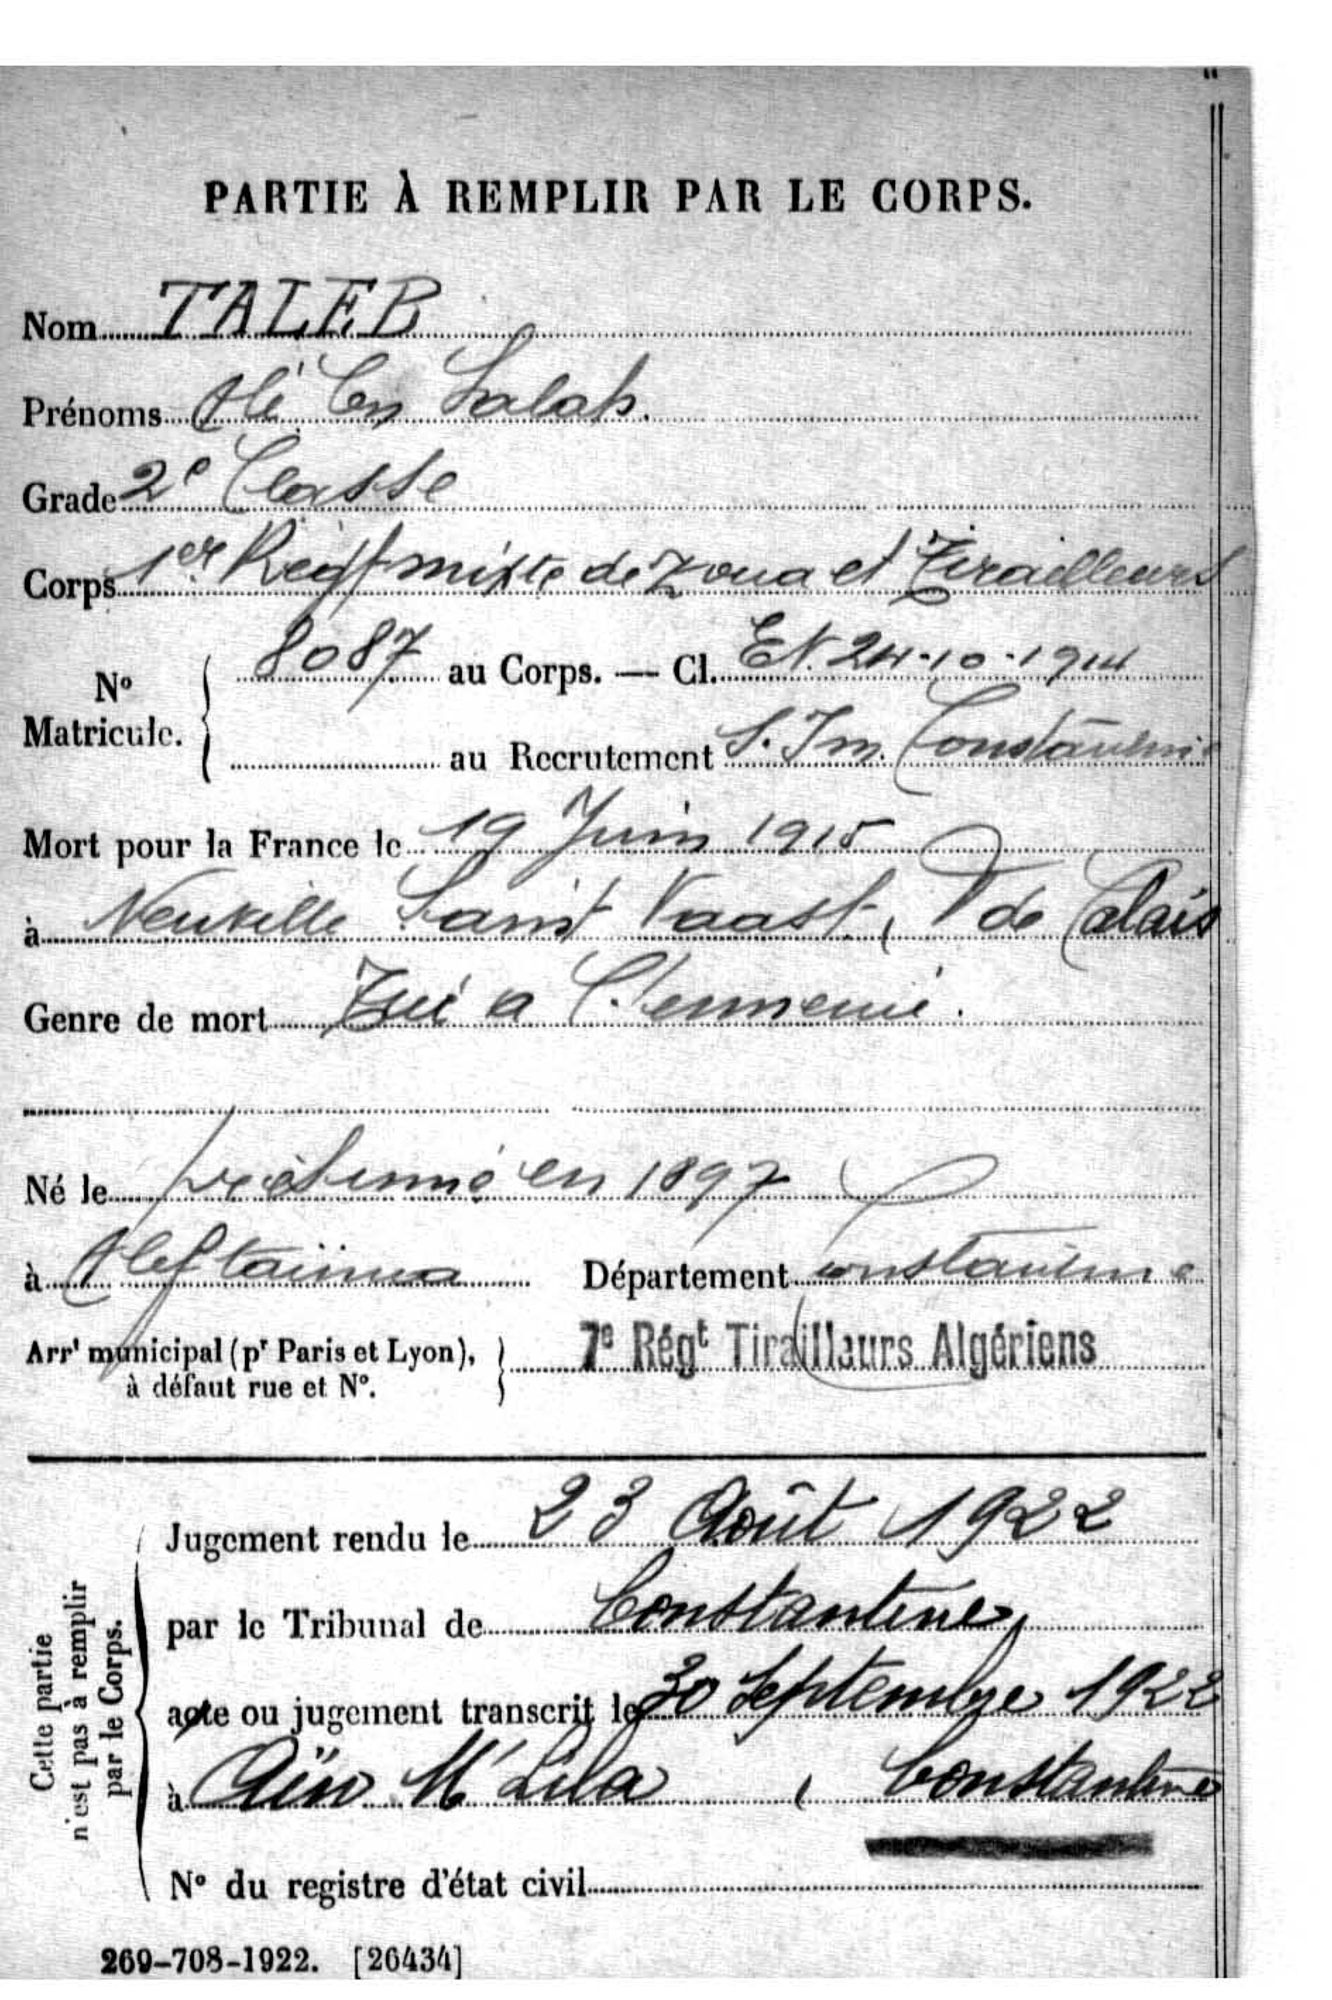 PARTIE À REMPLIR PAR LE CORPS.
Nom TALEB
Prénoms Ali ben Salah.
Grade 2e Classe
Corps 1er Régt mixte de Zoua et Tirailleurs
No Matricule. 8087 au Corps. — Cl. EV. 24-10-1914
au Recrutement S. Im. Constantine
Mort pour la France le 19 Juin 1915
à Neuville Saint Vaast, P de Calais
Genre de mort Tué a l'ennemi.
Né le présumé en 1897
à Département Constantine
Arrt municipal (pr Paris et Lyon), à défaut rue et No. 7e Régt Tirailleurs Algériens
Cette partie n'est pas à remplir par le Corps.
Jugement rendu le 23 Août 1922
par le Tribunal de Constantine,
acte ou jugement transcrit le 30 Septembre 1922
à Aïn M'Lila, Constantine
No du registre d'état civil
269-708-1922. [26434]